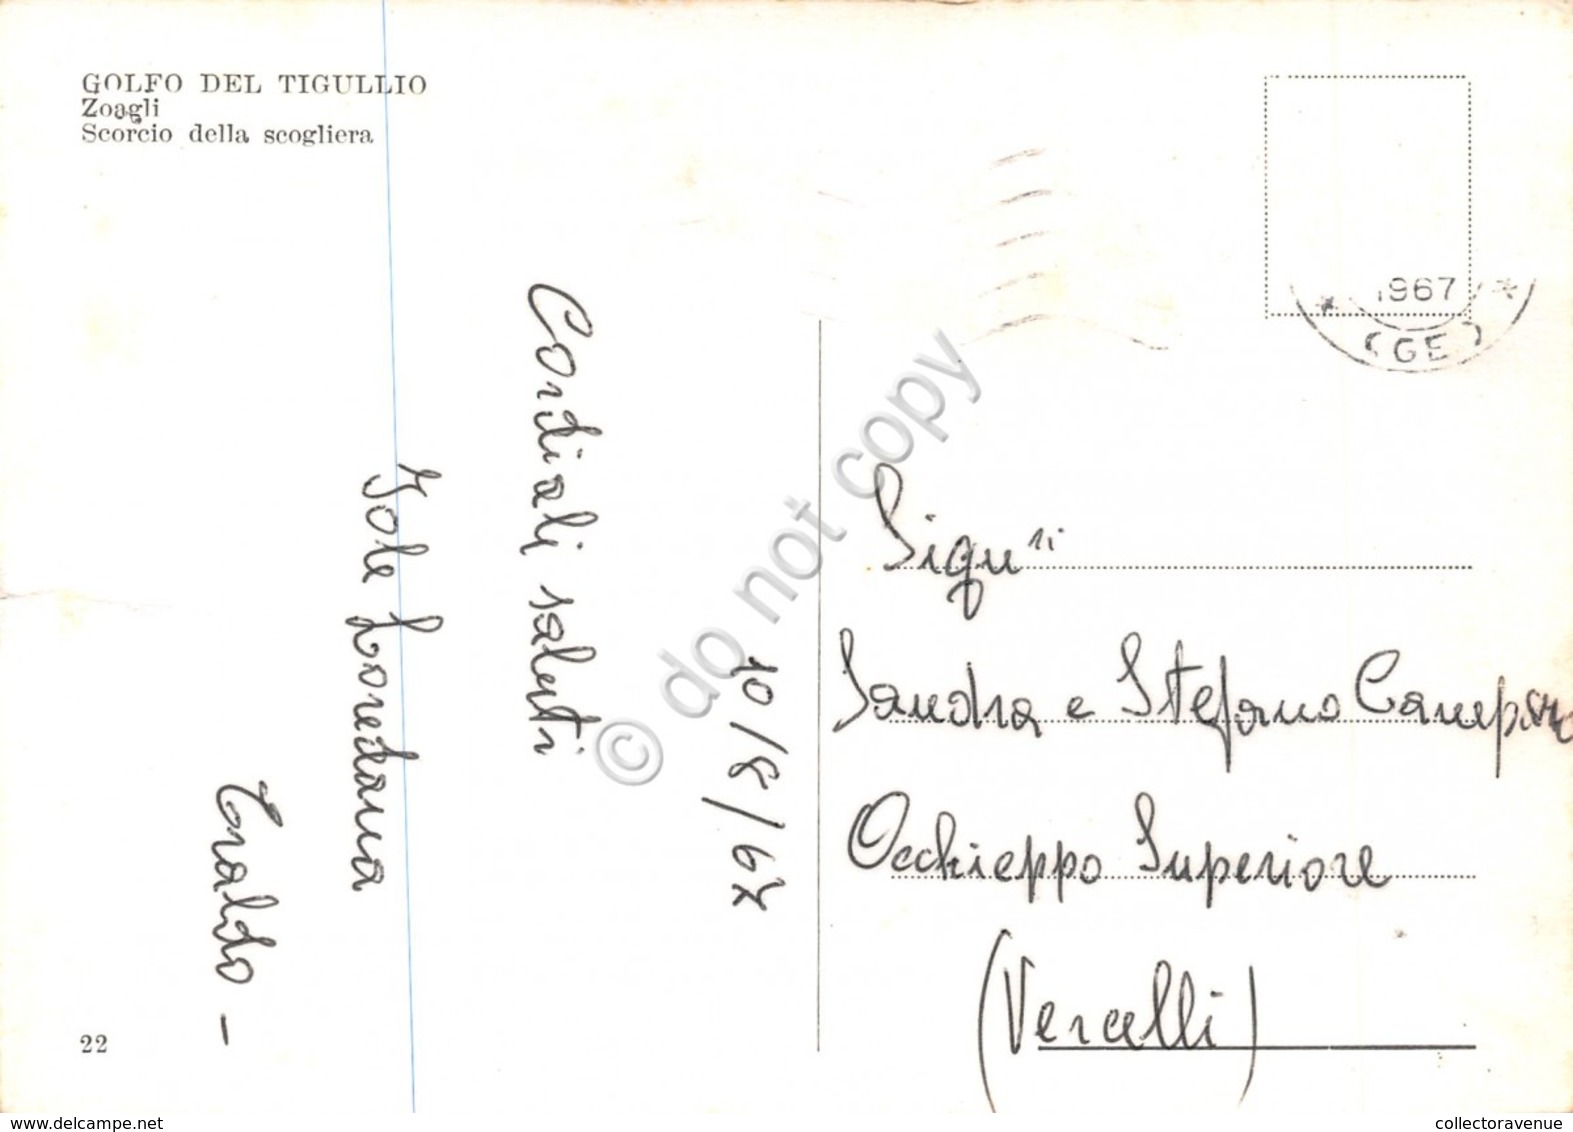 GOLFO DEL TIGULLIO
Zoagli
Scorcio della scogliera
1967
(GE)
10/8/67
Cordiali saluti
Iole Loredana
Eraldo -
Sigri
Sandra e Stefano
Occhieppo Superiore
(Vercelli)
22
© do not copy
www.delcampe.net
collectoravenue